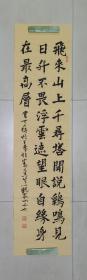 飛来山上千尋塔聞說鷄鳴見
日升不畏浮雲遮望眼自緣身
在最高層